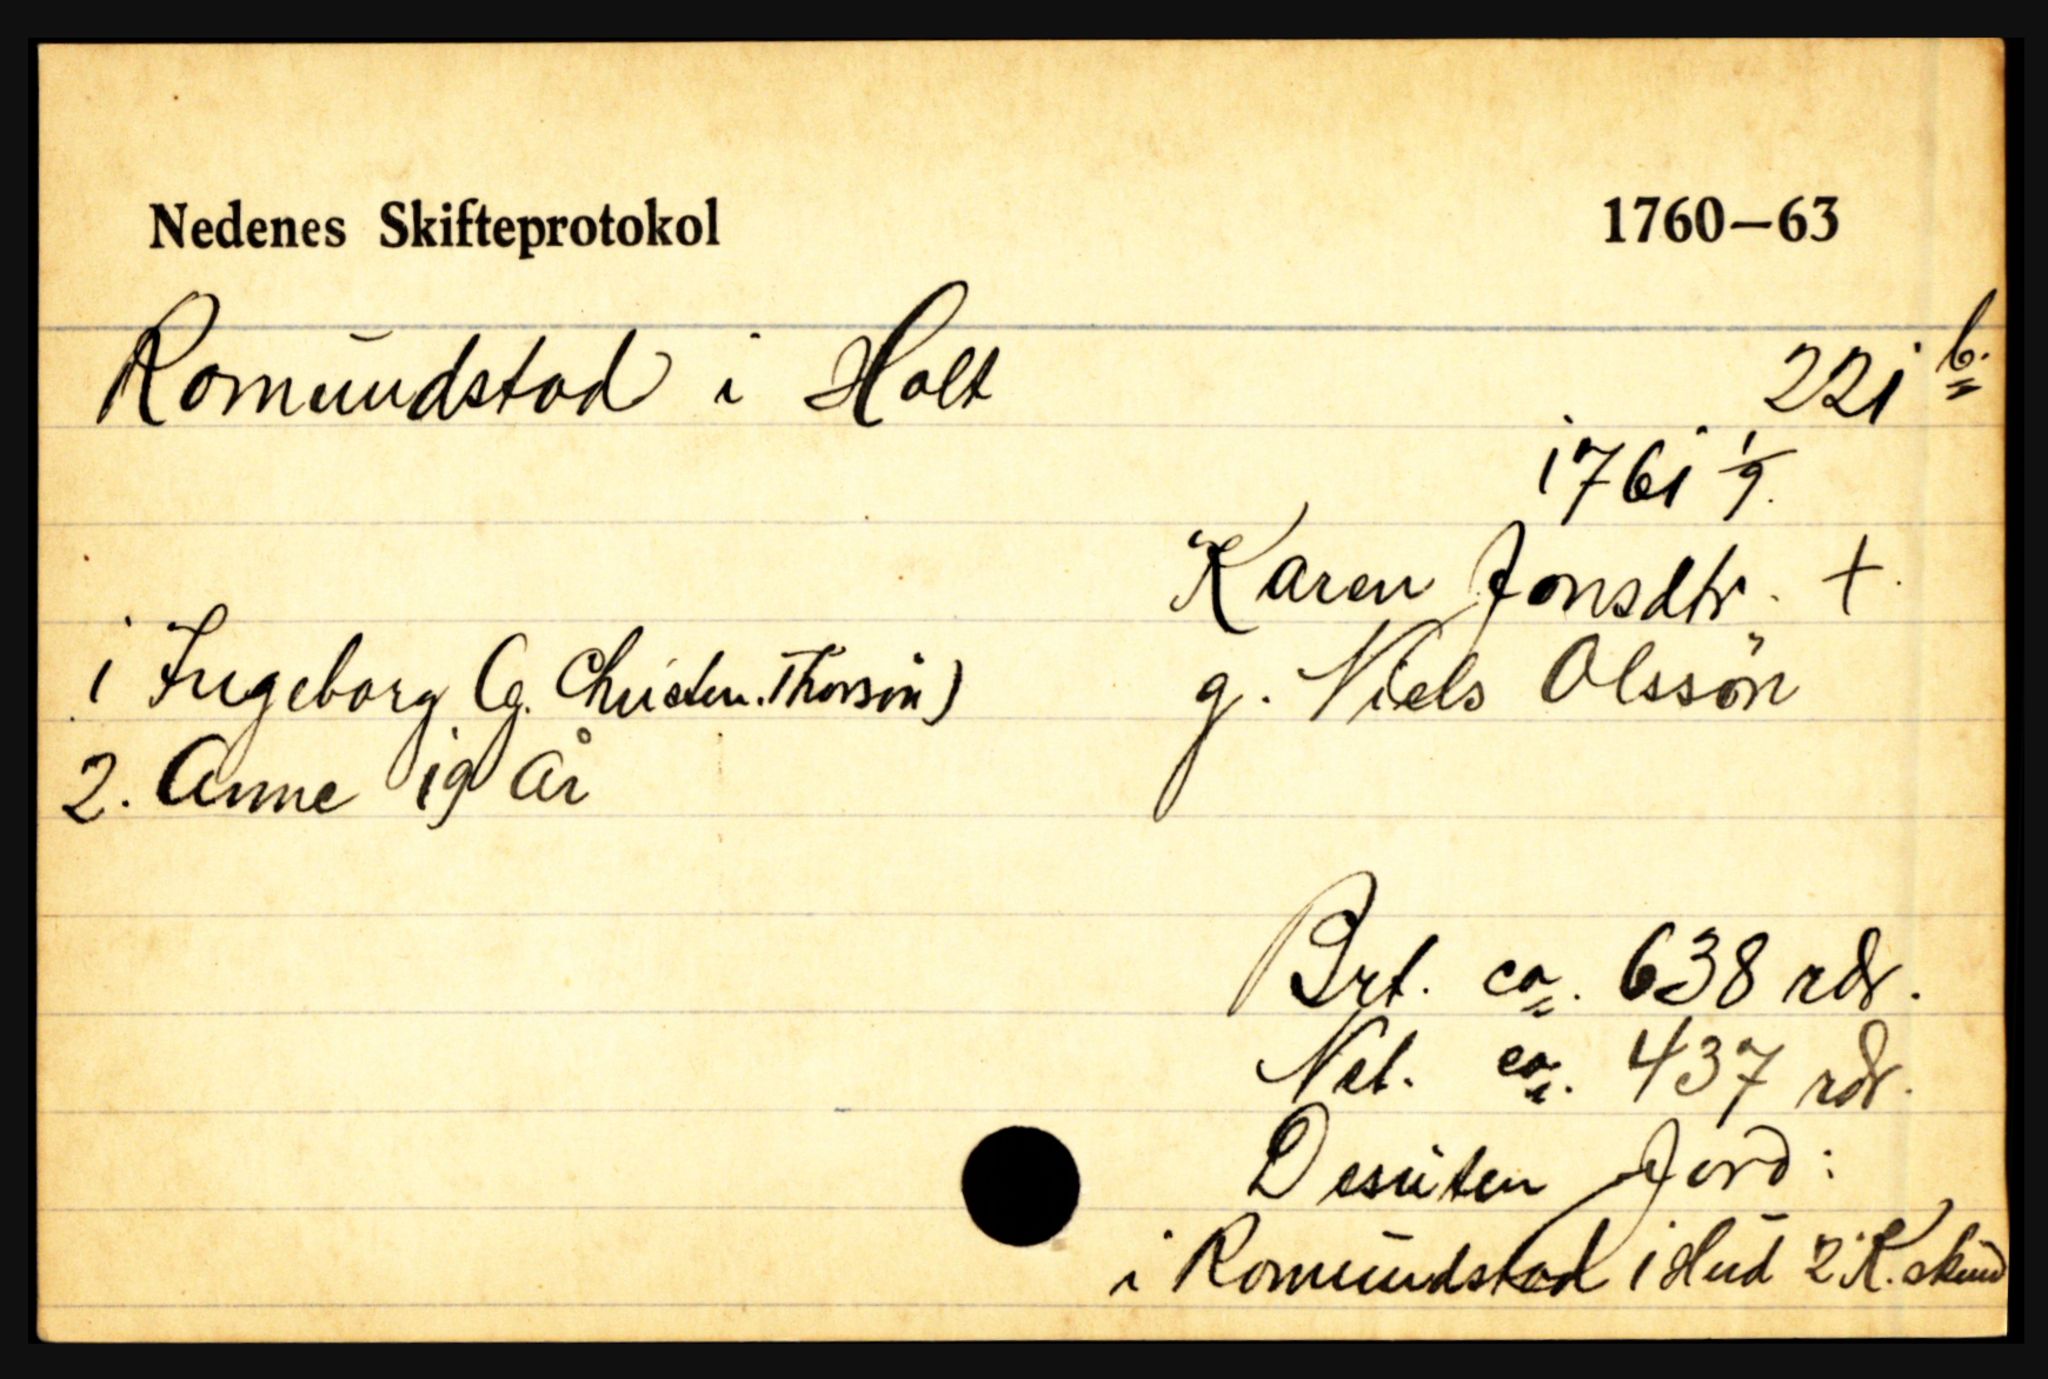 Nedenes Skifteprotokol 1760–63
Romundstad i Holt 221 b.
1761 1/9.
Karen Jonsdtr. +
1 Ingeborg (g. Christen Thorsön) g. Niels Olssön
2. Anne 19 år
Brt. ca. 638 rdr.
Net. ca. 437 rdr.
Desuten Jord:
i Romundstad 1 Hud 2 K.skind